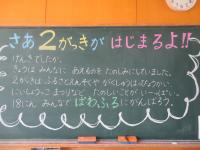 さあ2がっきが はじまるよ!!
げんきでしたか。
きょうは みんなに あえるのを たのしみにしていました。
2がっきは ふるさとえんそくや がくしゅうはっぴょうかい
にいしょうっこ まつりなど たのしいことが いーっぱい。
18にん みんなで ぱわふるにがんばろう。